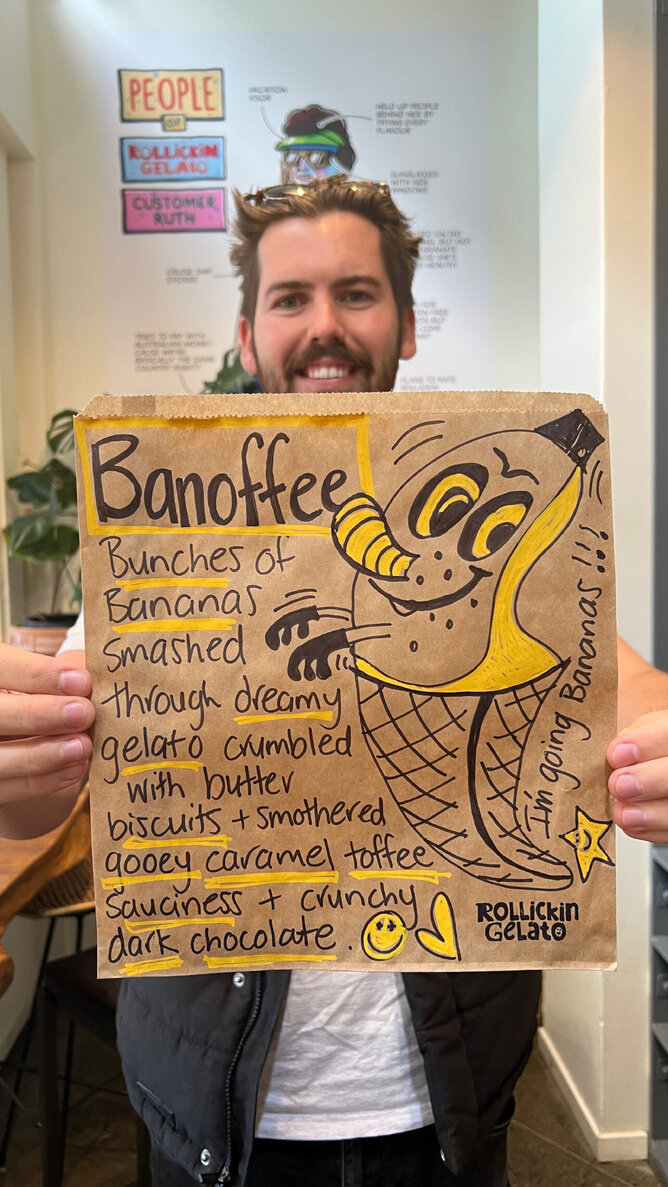 PEOPLE
OF
ROLLICKIN
GELATO
CUSTOMER
RUTH
VACATION
VISOR
HELD UP PEOPLE
BEHIND HER BY
TRYING EVERY
FLAVOUR
SUNGLASSES
WITH SIDE
WINDOWS
CRUISE SHIP
STICKER
TRIED TO PAY WITH
AUSTRALIAN MONEY
CAUSE WE'RE
BASICALLY THE SAME
COUNTRY RIGHT?
Banoffee
Bunches of
Bananas
smashed
through dreamy
gelato crumbled
with butter
biscuits + smothered
gooey caramel toffee
sauciness + crunchy
dark chocolate.
I'm going Bananas!!!
ROLLICKIN
GELATO